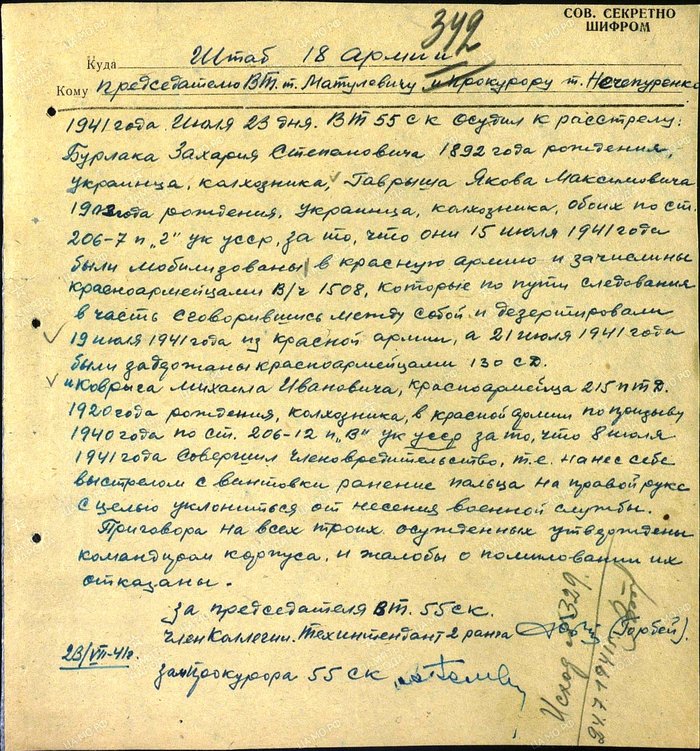 СОВ. СЕКРЕТНО
ШИФРОМ
342
Куда Штаб 18 армии
Кому председателю ВТ. т. Матулевичу и прокурору т. Нечепуренко
1941 года Июля 23 дня. ВТ 55 ск осудил к расстрелу:
Бурлака Захария Степановича 1892 года рождения,
украинца, колхозника, Гаврыша Якова Максимовича
года рождения, украинца, колхозника, обоих по ст.
206-7 п „2" ук усср, за то, что они 15 июля 1941 года
были мобилизованы в красную армию и зачислины
красноармейцами В/ч 1508, которые по пути следования
в часть сговорившись между собой и дезертировали
19 июля 1941 года из красной армии, а 21 июля 1941 года
были задержаны красноармейцами 130 сд.
и Коврыса Михаила Ивановича, красноармейца 215 птд.
1920 года рождения, колхозника, в красной армии по призыву
1940 года по ст. 206-12 п „В" ук усср за то, что 8 июля
1941 года совершил членовредительство, т.е. нанес себе
выстрелом с винтовки ранение пальца на правой руке
с целью уклониться от несения военной службы.
Приговора на всех троих осужденных утверждены
командиром корпуса, и жалобы о помиловании их
отказаны.
за председателя ВТ. 55 ск.
член Коллегии. Техинтендант 2 ранга (Горбей).
23/VII-41г.
зам прокурора 55 ск
Исход 329.
24.7.1941